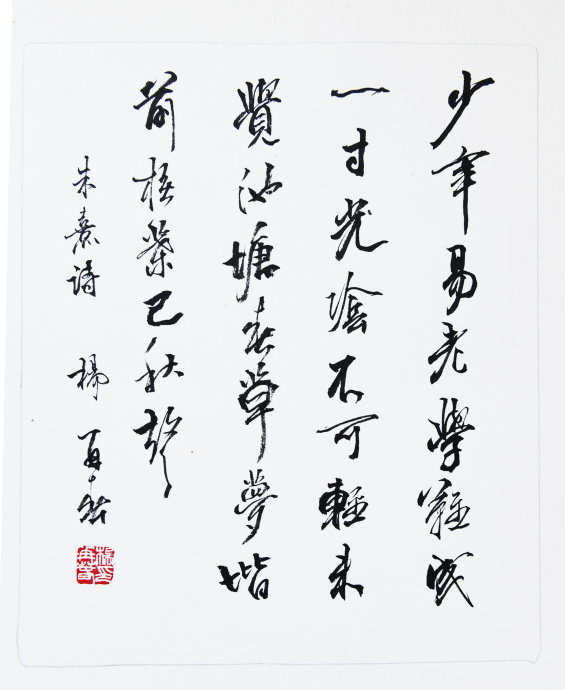 少年易老學難成
一寸光陰不可輕未
覺池塘春草夢堦
前梧葉已秋聲
朱熹詩 楊再春
楊印再春